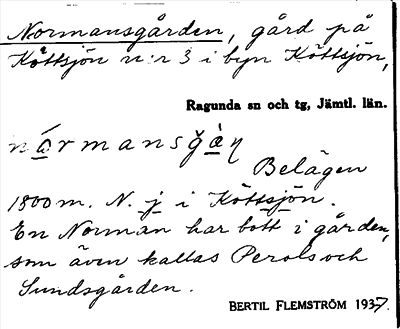 Normansgården, gård på
Köttsjön n:r 3 i byn Köttsjön,
Ragunda sn och tg, Jämtl. län.
nórmansg̀àɳ
Belägen
1800 m. N. j i Köttsjön.
En Norman har bott i gården,
som även kallas Perols och
Sundsgården.
BERTIL FLEMSTRÖM 1937.